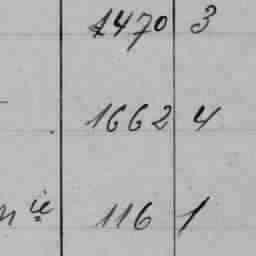 1470 3
1662 4
116 1